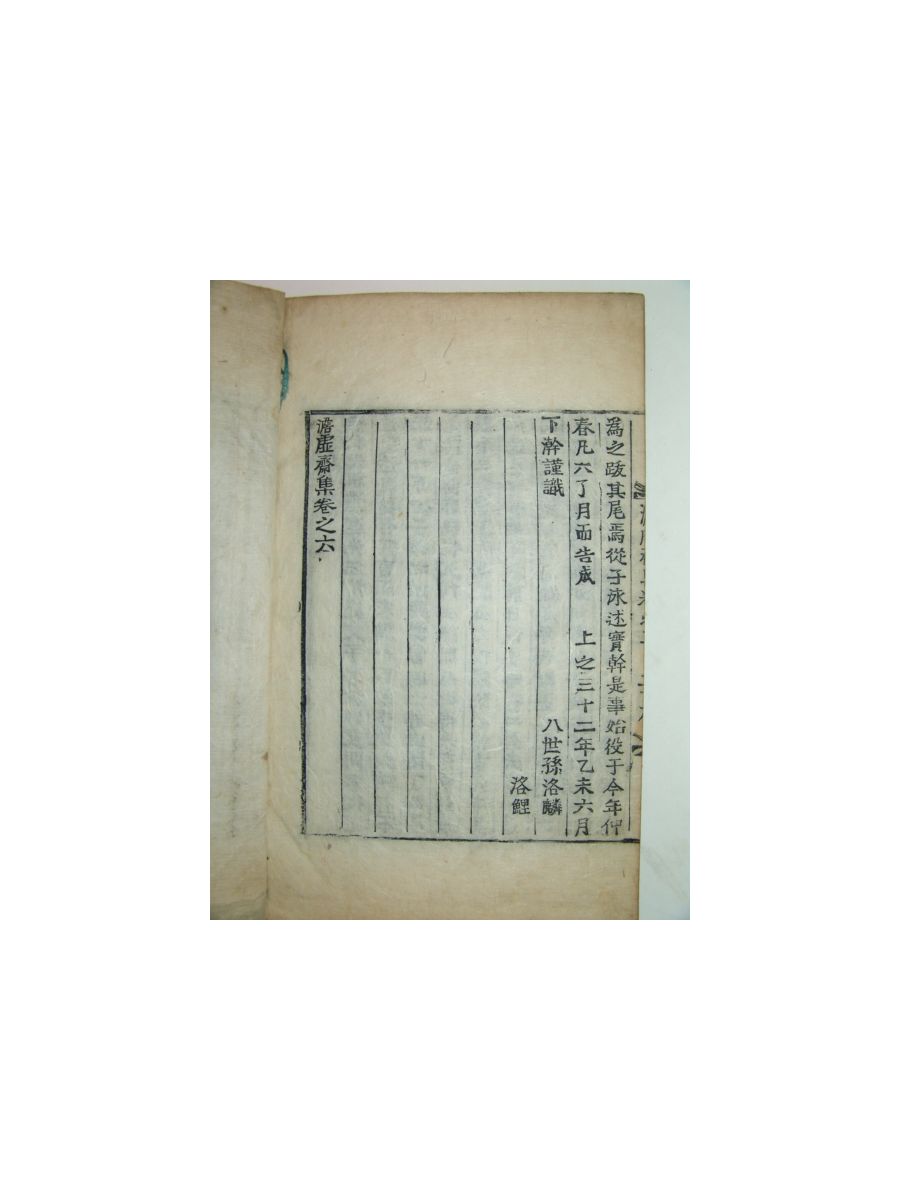 為之跋其尾焉從子泳述實幹是事始役于今年仲
春凡六了月而告成 上之三十二年乙未六月
下澣謹識 八世孫洛麟
洛鯉
澹虛齋集卷之六